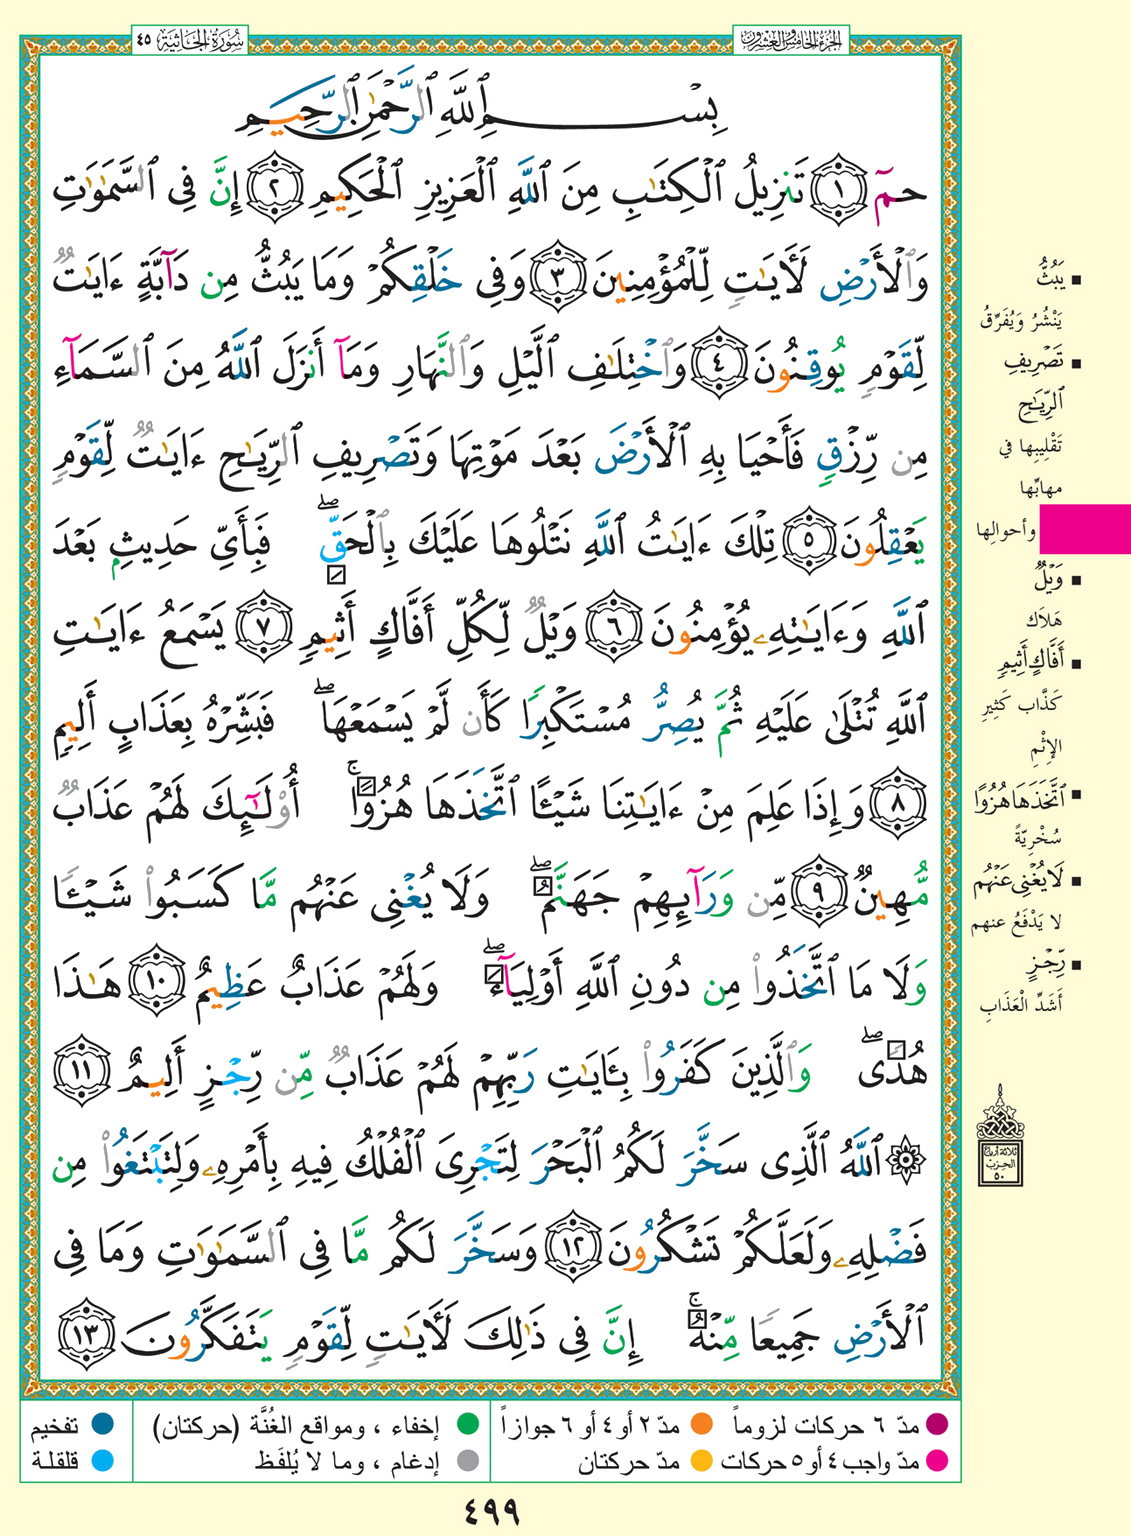 سُورَةُ الجَاثِيَة ٤٥
الجزء الخامس والعشرون
بِسْمِ ٱللَّهِ ٱلرَّحْمَٰنِ ٱلرَّحِيمِ
حمٓ ١ تَنزِيلُ ٱلْكِتَٰبِ مِنَ ٱللَّهِ ٱلْعَزِيزِ ٱلْحَكِيمِ ٢ إِنَّ فِى ٱلسَّمَٰوَٰتِ
وَٱلْأَرْضِ لَءَايَٰتٍ لِّلْمُؤْمِنِينَ ٣ وَفِى خَلْقِكُمْ وَمَا يَبُثُّ مِن دَآبَّةٍ ءَايَٰتٌ
لِّقَوْمٍ يُوقِنُونَ ٤ وَٱخْتِلَٰفِ ٱلَّيْلِ وَٱلنَّهَارِ وَمَآ أَنزَلَ ٱللَّهُ مِنَ ٱلسَّمَآءِ
مِن رِّزْقٍ فَأَحْيَا بِهِ ٱلْأَرْضَ بَعْدَ مَوْتِهَا وَتَصْرِيفِ ٱلرِّيَٰحِ ءَايَٰتٌ لِّقَوْمٍ
يَعْقِلُونَ ٥ تِلْكَ ءَايَٰتُ ٱللَّهِ نَتْلُوهَا عَلَيْكَ بِٱلْحَقِّ ۖ فَبِأَىِّ حَدِيثٍۭ بَعْدَ
ٱللَّهِ وَءَايَٰتِهِۦ يُؤْمِنُونَ ٦ وَيْلٌ لِّكُلِّ أَفَّاكٍ أَثِيمٍ ٧ يَسْمَعُ ءَايَٰتِ
ٱللَّهِ تُتْلَىٰ عَلَيْهِ ثُمَّ يُصِرُّ مُسْتَكْبِرًا كَأَن لَّمْ يَسْمَعْهَا ۖ فَبَشِّرْهُ بِعَذَابٍ أَلِيمٍ
٨ وَإِذَا عَلِمَ مِنْ ءَايَٰتِنَا شَيْـًٔا ٱتَّخَذَهَا هُزُوًا ۚ أُو۟لَٰٓئِكَ لَهُمْ عَذَابٌ
مُّهِينٌ ٩ مِّن وَرَآئِهِمْ جَهَنَّمُ ۖ وَلَا يُغْنِى عَنْهُم مَّا كَسَبُوا۟ شَيْـًٔا
وَلَا مَا ٱتَّخَذُوا۟ مِن دُونِ ٱللَّهِ أَوْلِيَآءَ ۖ وَلَهُمْ عَذَابٌ عَظِيمٌ ١٠ هَٰذَا
هُدًى ۖ وَٱلَّذِينَ كَفَرُوا۟ بِـَٔايَٰتِ رَبِّهِمْ لَهُمْ عَذَابٌ مِّن رِّجْزٍ أَلِيمٌ ١١
۞ ٱللَّهُ ٱلَّذِى سَخَّرَ لَكُمُ ٱلْبَحْرَ لِتَجْرِىَ ٱلْفُلْكُ فِيهِ بِأَمْرِهِۦ وَلِتَبْتَغُوا۟ مِن
فَضْلِهِۦ وَلَعَلَّكُمْ تَشْكُرُونَ ١٢ وَسَخَّرَ لَكُم مَّا فِى ٱلسَّمَٰوَٰتِ وَمَا فِى
ٱلْأَرْضِ جَمِيعًا مِّنْهُ ۚ إِنَّ فِى ذَٰلِكَ لَءَايَٰتٍ لِّقَوْمٍ يَتَفَكَّرُونَ ١٣
■ يَبُثُّ
يَنْشُرُ وَيُفَرِّقُ
■ تَصْرِيفِ
ٱلرِّيَٰحِ
تَقْلِيبِها في
مهابِّها
وأحوالِها
■ وَيْلٌ
هَلاك
■ أَفَّاكٍ أَثِيمٍ
كَذَّاب كَثِيرِ
الإِثْمِ
■ ٱتَّخَذَهَا هُزُوًا
سُخْرِيّةً
■ لَا يُغْنِى عَنْهُم
لا يَدْفَعُ عنهم
■ رِّجْزٍ
أَشَدِّ الْعَذَابِ
ثلاثة أرباع
الحزب
٥٠
مدّ ٦ حركات لزوماً
مدّ ٢ أو ٤ أو ٦ جوازاً
إخفاء ، ومواقع الغُنَّة (حركتان)
تفخيم
مدّ واجب ٤ أو ٥ حركات
مدّ حركتان
إدغام ، وما لا يُلفَظ
قلقلة
٤٩٩